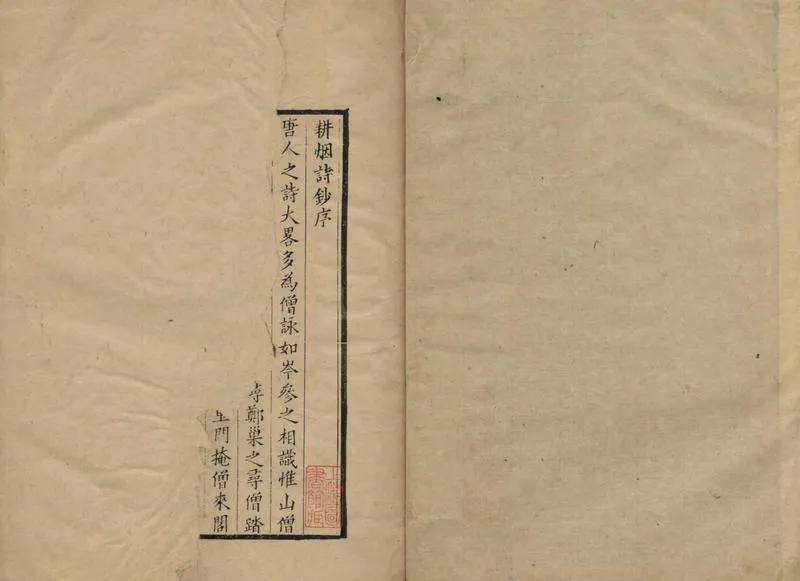 耕烟詩鈔序
唐人之詩大畧多為僧詠如岑參之相識惟山僧
尋鄭巢之尋僧踏
門掩僧來閣